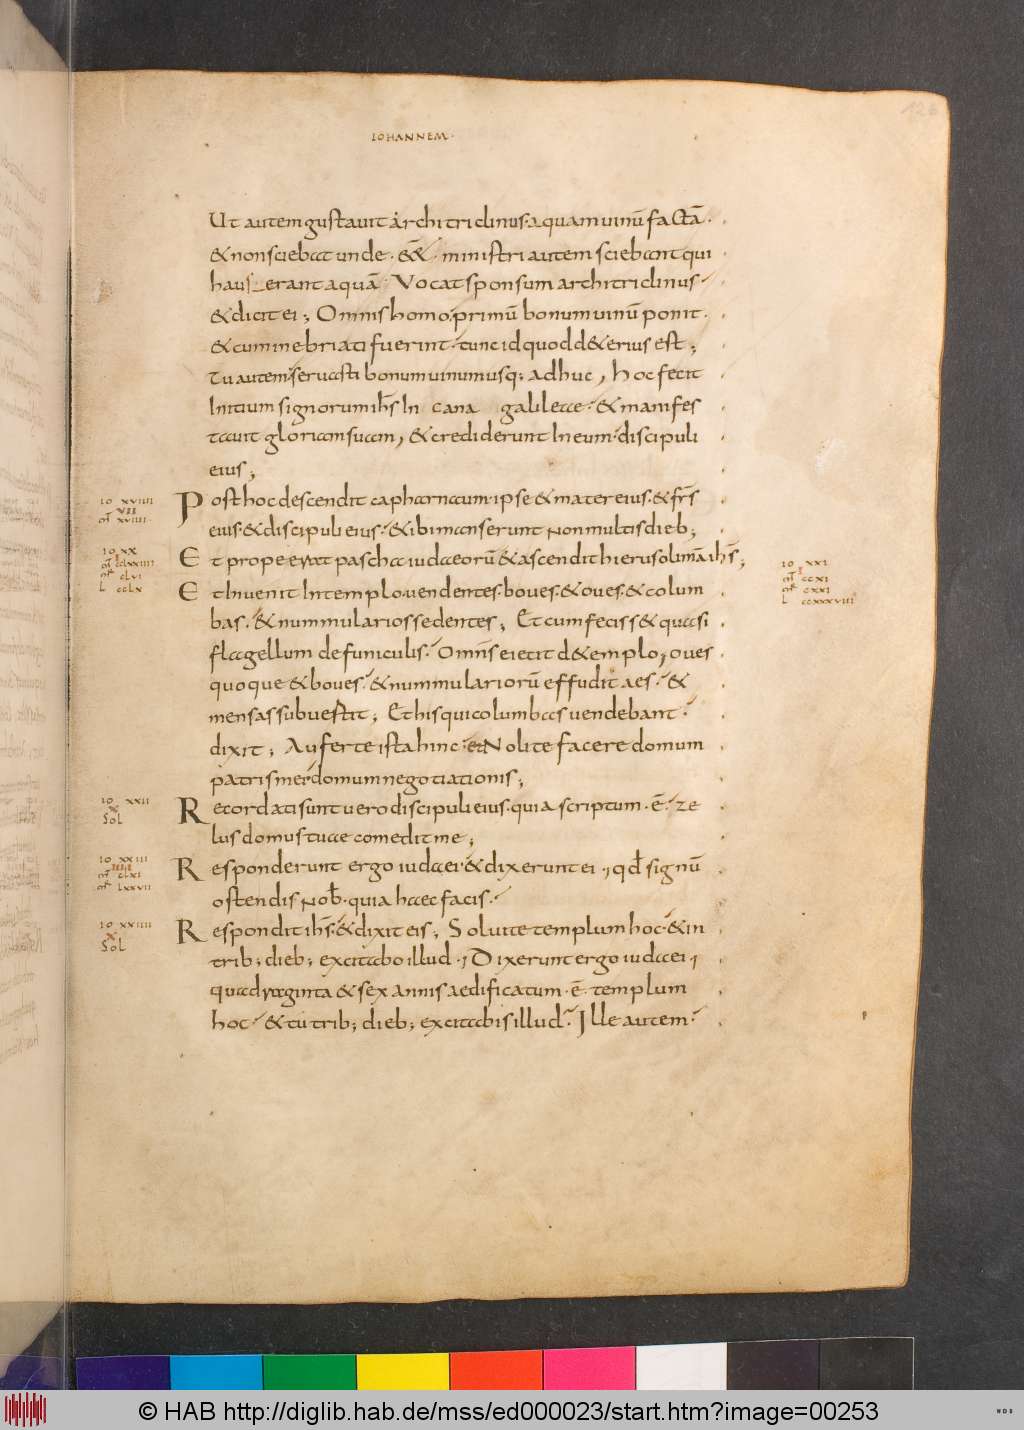 IOHANNEM·
Ut autem gustauit architriclinus· aquam uinū factā·
& non sciebat unde· ēēt· ministri autem sciebant qui
hauserant aquā· Vocat sponsum architriclinus
& dicit ei; Omnis homo primū bonum uinū ponit·
& cum inebriati fuerint· tunc id quod d&erius est;
Tu autem seruasti bonum uinum usq; adhuc, Hoc fecit
Initium signorum ihs In cana galileae· & manifes
tauit gloriam suam, & crediderunt In eum· discipuli
eius;
10 XVIIII
VII
XVIIII
Post hoc descendit capharnaum· ipse & mater eius· & frs
eius· & discipuli eius· & ibi manserunt non multis dieb;
10 XX
I
CLXXIIII
CLVI
L CCLX
Et prope erat pascha iudaeorū & ascendit hierusolimā ihs;
10 XXI
I
CCXI
CXXI
L CCXXXVIII
Et Inuenit In templo uendentes· boues· & oues· & colum
bas· & nummularios sedentes; Et cum feciss& quasi
flagellum de funiculis· Omns eiecit d&emplo, oues
quoque & boues· & nummulariorū effudit aes· &
mensas subuertit; Et his qui columbas uendebant·
dixit; Auferte ista hinc· et Nolite facere domum
patris mei domum negotiationis;
10 XXII
X
SOL
Recordati sunt uero discipuli eius· quia scriptum· ē· ze
lus domus tuae comedit me;
10 XXIII
IIII
CLXI
LXXVII
Responderunt ergo iudaei & dixerunt ei· qd signū
ostendis nob· quia haec facis·
10 XXIIII
X
SOL
Respondit ihs· & dixit eis; Soluite templum hoc· & in
trib; dieb; excitabo illud· Dixerunt ergo iudaei
quadraginta & sex annis aedificatum· ē· templum
hoc· & tu trib; dieb; excitabis illud· Ille autem·
© HAB http://diglib.hab.de/mss/ed000023/start.htm?image=00253